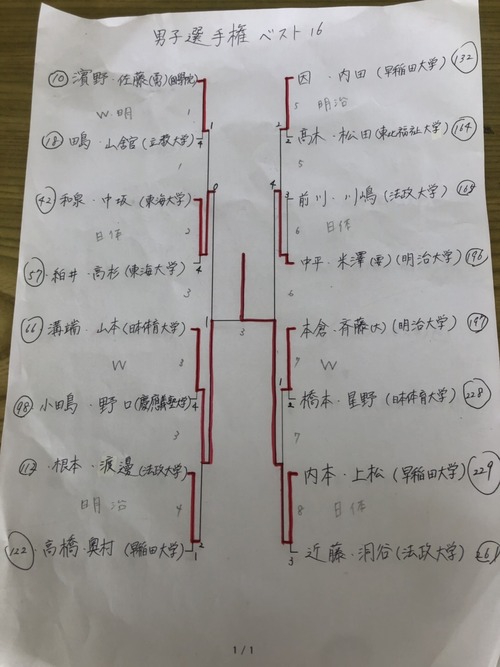 男子選手権 ベスト16
10 濱野・佐藤(雲)
W 明 1
18 田嶋・ (立教大学) 4
1
42 和泉・中坂 (東海大学)
日体 2
57 ・高杉 (東海大学) 4
3
66 溝端・山本 (日本体育大学)
W 3
98 小田嶋・野口 (慶應義塾大学) 4
3
・根本・渡邉 (法政大学)
明治 4
122 ・高橋・奥村 (早稲田大学) 1
2
1
0
1
3
因・内田 (早稲田大学) 132
5 明治
2
2 髙木・松田 (東北福祉大学) 164
5
4
前川・川嶋 (法政大学) 165
6 日体
中平・米澤 (明治大学) 196
6
本倉・斉藤(大) (明治大学) 197
7 W
1
2 橋本・星野 (日本体育大学) 228
7
内本・上松 (早稲田大学) 229
8 日体
3 近藤・洞谷 (法政大学)
1 / 1